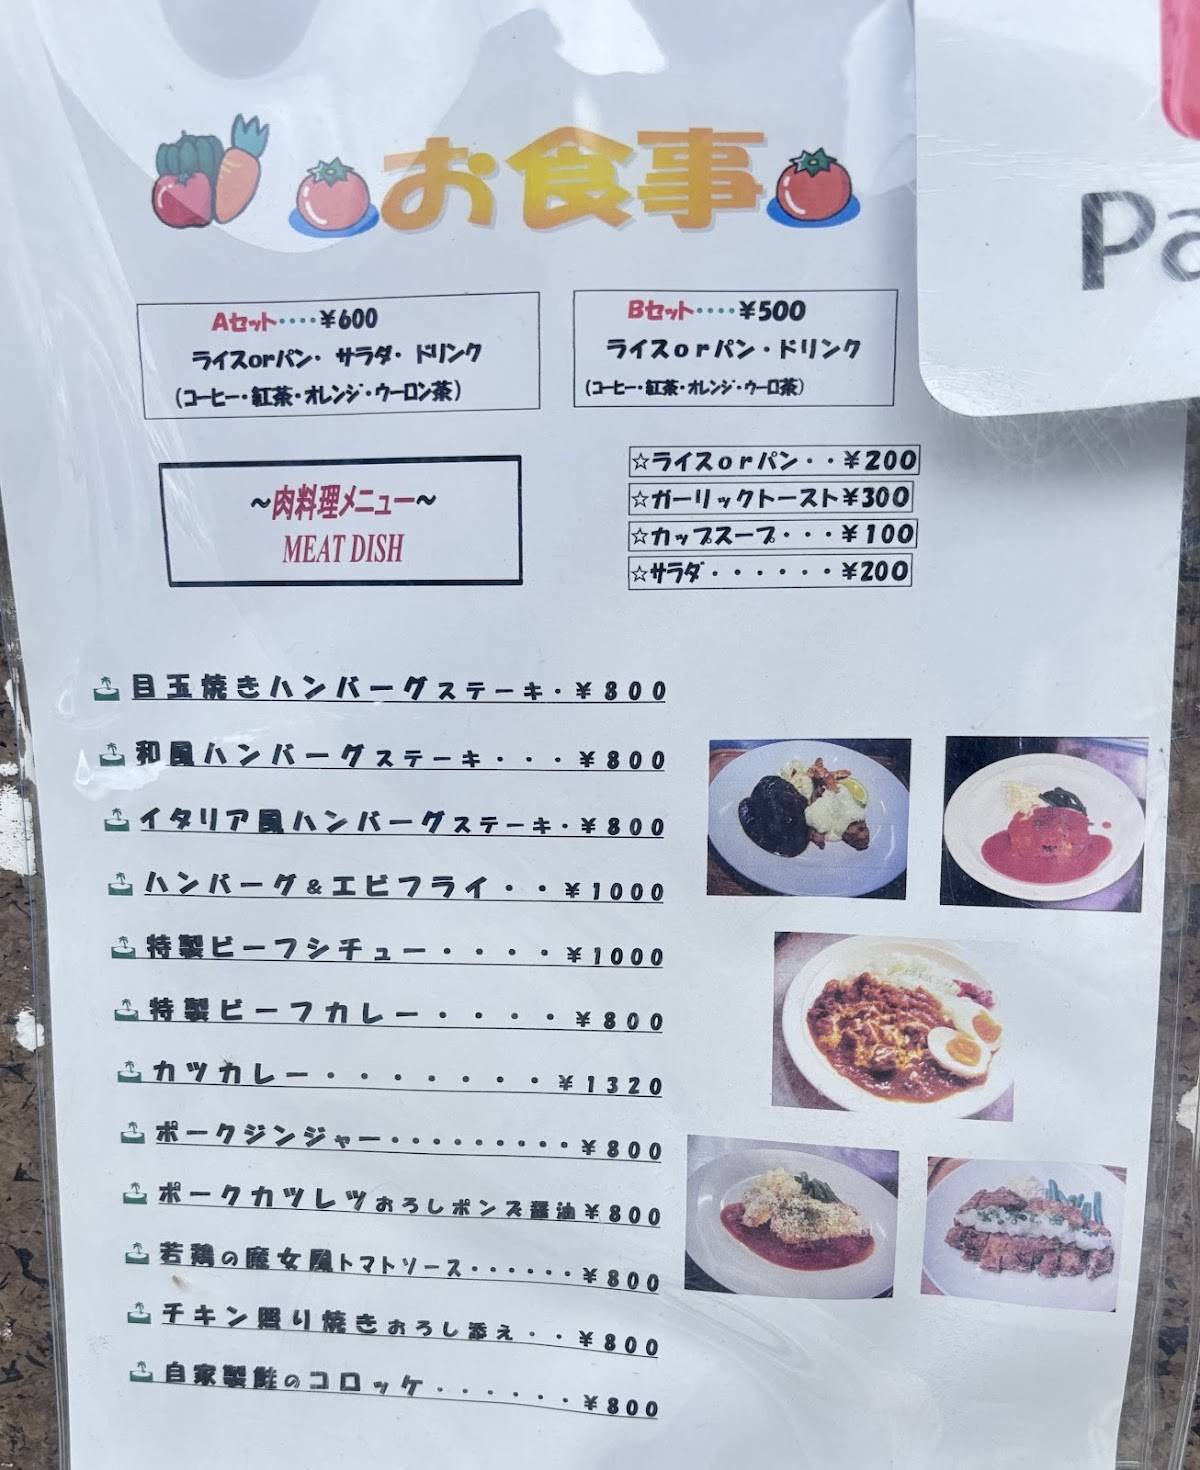 お食事
Pa
Aセット････¥600
ライスorパン・サラダ・ドリンク
(コーヒー・紅茶・オレンジ・ウーロン茶)
Bセット････¥500
ライスorパン・ドリンク
(コーヒー・紅茶・オレンジ・ウーロ茶)
～肉料理メニュー～
MEAT DISH
☆ライスorパン・・¥200
☆ガーリックトースト¥300
☆カップスープ・・・¥100
☆サラダ・・・・・・¥200
目玉焼きハンバーグステーキ・¥800
和風ハンバーグステーキ・・・¥800
イタリア風ハンバーグステーキ・¥800
ハンバーグ&エビフライ・・¥1000
特製ビーフシチュー・・・・¥1000
特製ビーフカレー・・・・¥800
カツカレー・・・・・・・¥1320
ポークジンジャー・・・・・・・・・¥800
ポークカツレツおろしポンズ醤油¥800
若鶏の魔女風トマトソース・・・・・・¥800
チキン照り焼きおろし添え・・¥800
自家製鮭のコロッケ・・・・・・¥800